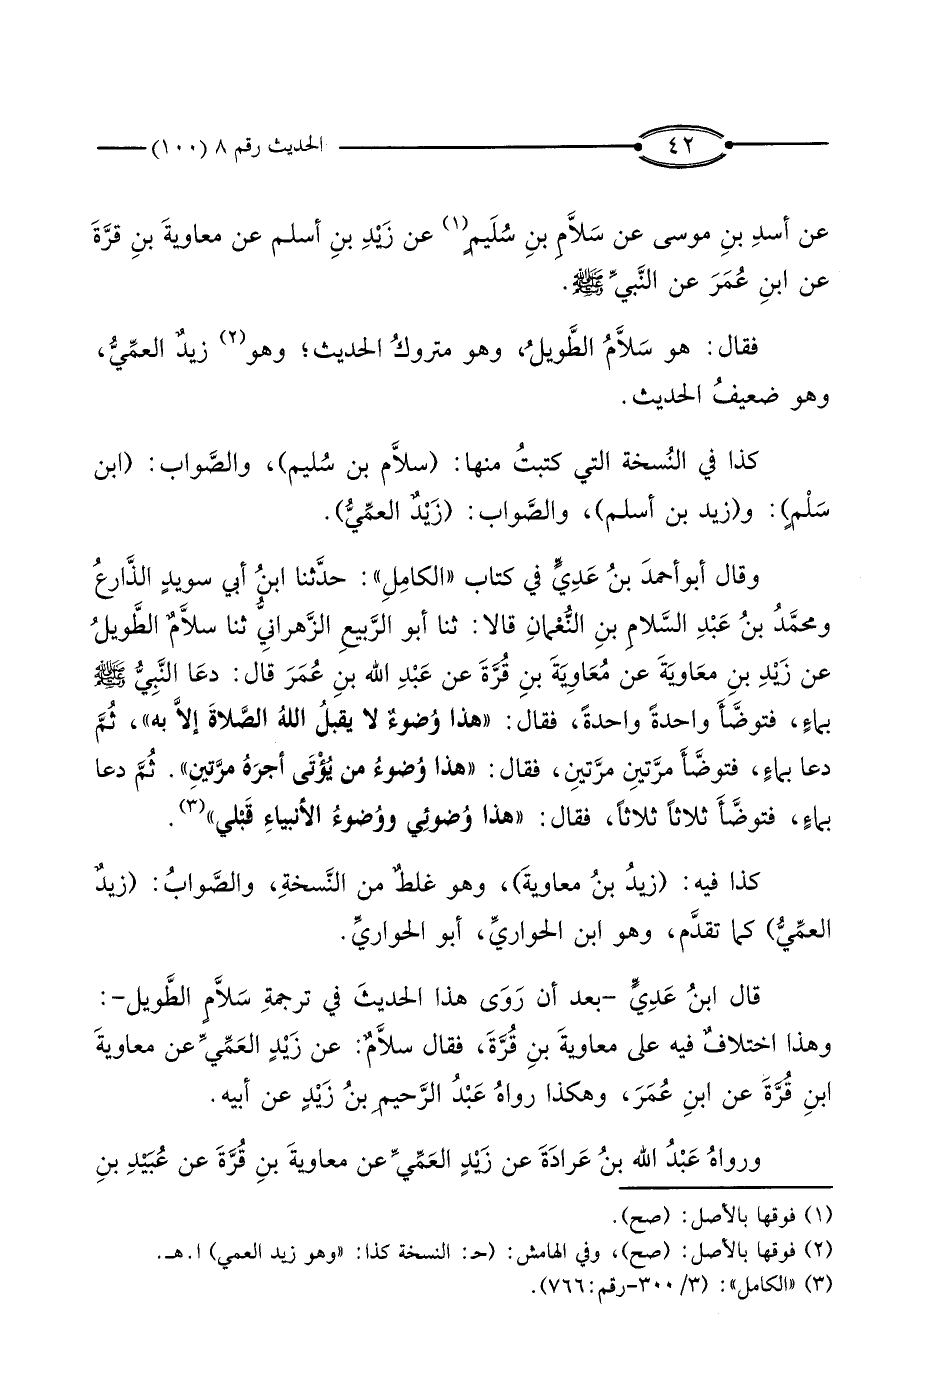 ٤٢ الحديث رقم ٨ (١٠٠)
عن أسدِ بنِ موسى عن سَلاَّمِ بنِ سُلَيمٍ(١) عن زَيْدِ بنِ أسلم عن معاويةَ بنِ قرَّةَ
عن ابنِ عُمَرَ عن النَّبيِّ ﷺ.
فقال: هو سَلاَّمُ الطَّويلُ، وهو متروكُ الحديث؛ وهو(٢) زيدٌ العمِّيُّ،
وهو ضعيفُ الحديث.
كذا في النُسخة التي كتبتُ منها: (سلاَّم بن سُليم)، والصَّواب: (ابن
سَلْمٍ): و(زيد بن أسلم)، والصَّواب: (زَيْدٌ العمِّيُّ).
وقال أبوأحمدَ بنُ عَدِيٍّ في كتاب «الكامِلِ»: حدَّثنا ابنُ أبي سويدٍ الذَّارعُ
ومحمَّدُ بنُ عَبْدِ السَّلامِ بنِ النُّعْمانِ قالا: ثنا أبو الرَّبيعِ الزَّهرانيُّ ثنا سلاَّمٌ الطَّويلُ
عن زَيْدِ بنِ معَاويَةَ عن مُعَاوِيَةَ بنِ قُرَّةَ عن عَبْدِ الله بنِ عُمَرَ قال: دعَا النَّبِيُّ ﷺ
بماءٍ، فتوضَّأَ واحدةً واحدةً، فقال: «هذا وُضوءٌ لا يقبلُ اللهُ الصَّلاةَ إلاَّ به»، ثُمَّ
دعا بماءٍ، فتوضَّأَ مرَّتينِ مرَّتينِ، فقال: «هذا وُضوءُ من يُؤْتَى أجرَهُ مرَّتينِ». ثُمَّ دعا
بماءٍ، فتوضَّأَ ثلاثاً ثلاثاً، فقال: «هذا وُضوئِي ووُضوءُ الأنبياءِ قَبْلي»(٣).
كذا فيه: (زيدُ بنُ معاوية)، وهو غلطٌ من النَّسخةِ، والصَّوابُ: (زيدٌ
العمِّيُّ) كما تقدَّم، وهو ابن الحواريِّ، أبو الحواريِّ.
قال ابنُ عَدِيٍّ -بعد أن رَوَى هذا الحديثَ في ترجمةِ سَلاَّمٍ الطَّويل-:
وهذا اختلافٌ فيه على معاويةَ بنِ قُرَّةَ، فقال سلاَّمٌ: عن زَيْدٍ العَمِّيِّ عن معاويةَ
ابنِ قُرَّةَ عن ابنِ عُمَرَ، وهكذا رواهُ عَبْدُ الرَّحيمِ بنُ زَيْدٍ عن أبيه.
ورواهُ عَبْدُ الله بنُ عَرادَةَ عن زَيْدٍ العَمِّيِّ عن معاويةَ بنِ قُرَّةَ عن عُبَيْدِ بنِ
(١) فوقها بالأصل: (صح).
(٢) فوقها بالأصل: (صح)، وفي الهامش: (حـ: النسخة كذا: «وهو زيد العمي) ا.هـ.
(٣) «الكامل»: (٣/ ٣٠٠-رقم:٧٦٦).